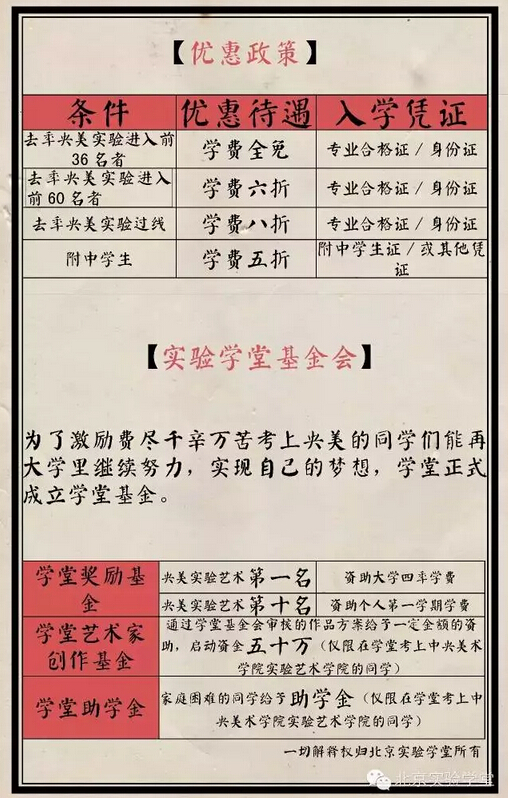 【优惠政策】
条件 优惠待遇 入学凭证
去年央美实验进入前
36名者
学费全免 专业合格证/身份证
去年央美实验进入
前60名者
学费六折 专业合格证/身份证
去年央美实验过线 学费八折 专业合格证/身份证
附中学生 学费五折
附中学生证/或其他凭
证
【实验学堂基金会】
为了激励费尽千辛万苦考上央美的同学们能再
大学里继续努力，实现自己的梦想，学堂正式
成立学堂基金。
学堂奖励基
金
央美实验艺术第一名 资助大学四年学费
央美实验艺术第十名 资助个人第一学期学费
学堂艺术家
创作基金
通过学堂基金会审核的作品方案给予一定金额的资
助，启动资金五十万（仅限在学堂考上中央美术
学院实验艺术学院的同学）
学堂助学金
家庭困难的同学给予助学金（仅限在学堂考上中
央美术学院实验艺术学院的同学）
一切解释权归北京实验学堂所有
北京实验学堂